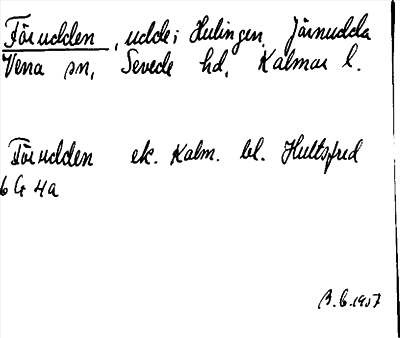 Förudden, udde i Hulingen, Järnudda
Vena sn, Sevede hd, Kalmar l.
Förudden ek. Kalm. bl. Hultsfred
6 G 4a
B.G. 1957